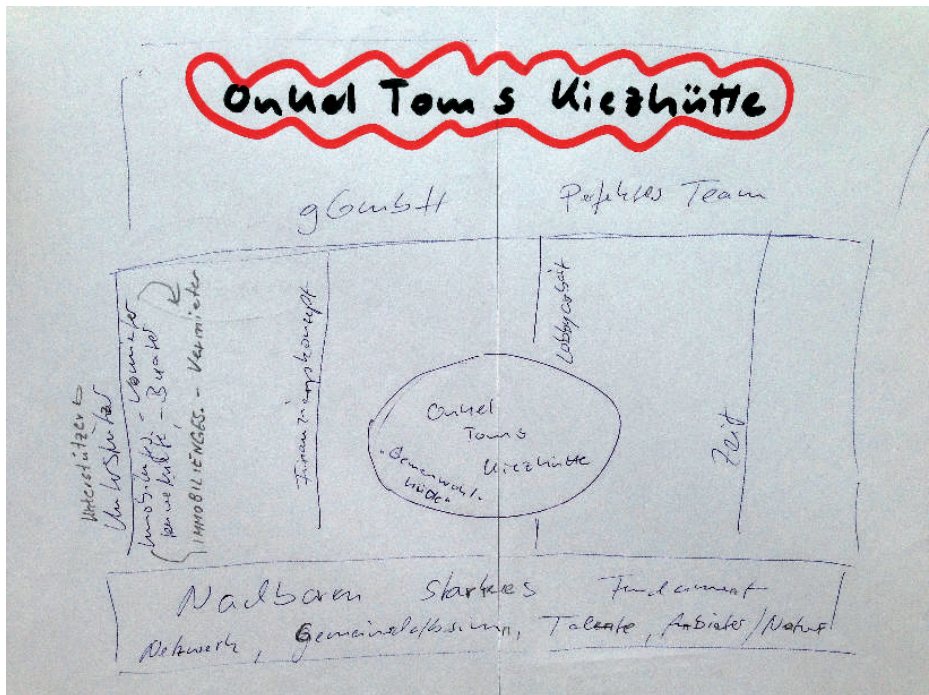 Onkel Toms Kiezhütte
gGmbH Perfektes Team
Unterstützer
Unterstützer
Immobilienges. - Vermieter
- Berater
IMMOBILIENGES. - Vermieter
Finanzierungskonzept
Lobbyarbeit
Zeit
Onkel
Toms
Kiezhütte
"Gemeinwohl-
Nachbaren starkes Fundament
Netzwerk, Gemeinschaftssinn, Talente, Anbieter/Natur